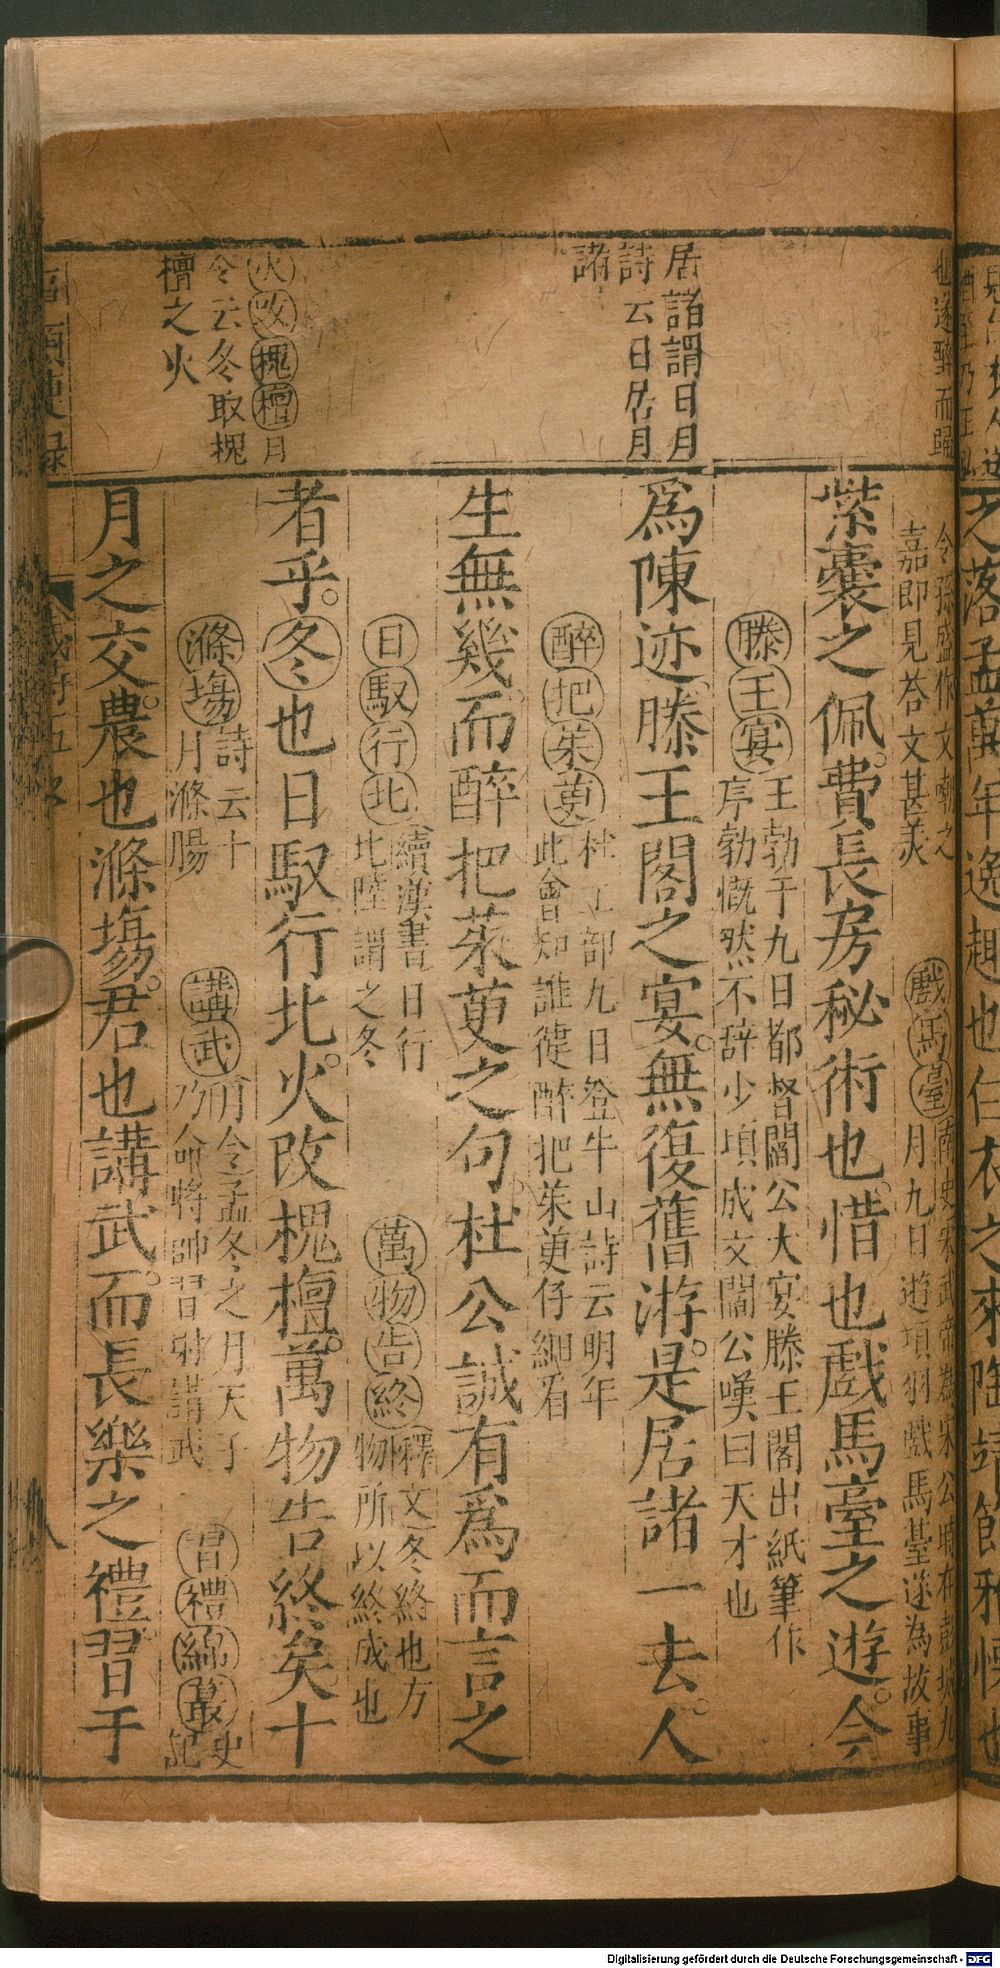 也遂醉而歸
居諸謂日月
詩云日居月
諸
火改槐檀月
令云冬取槐
檀之火
令孫盛作文嘲之
嘉即見荅文甚美
戲馬臺南史宋武帝為宋公時在彭城九
月九日遊項羽戲馬臺遂為故事
紫囊之佩費長房秘術也惜也戲馬臺之遊今
滕王宴王勃于九日都督閻公大宴滕王閣出紙筆作
序勃慨然不辞少頃成文閻公嘆曰天才也
為陳迹滕王閣之宴無復舊游是居諸一去人
醉把茱萸杜工部九日登牛山詩云明年
此會知誰徤醉把茱萸仔細看
生無幾而醉把茱萸之句杜公誠有為而言之
日馭行北續漢書日行
北陸謂之冬
萬物告終釋文冬終也方
物所以終成也
者乎冬也日馭行北火改槐檀萬物告終矣十
滌場詩云十
月滌場
講武月令孟冬之月天子
乃命將帥習射講武
習禮綿蕞史
記
月之交農也滌場君也講武而長樂之禮習于
Digitalisierung gefördert durch die Deutsche Forschungsgemeinschaft - DFG